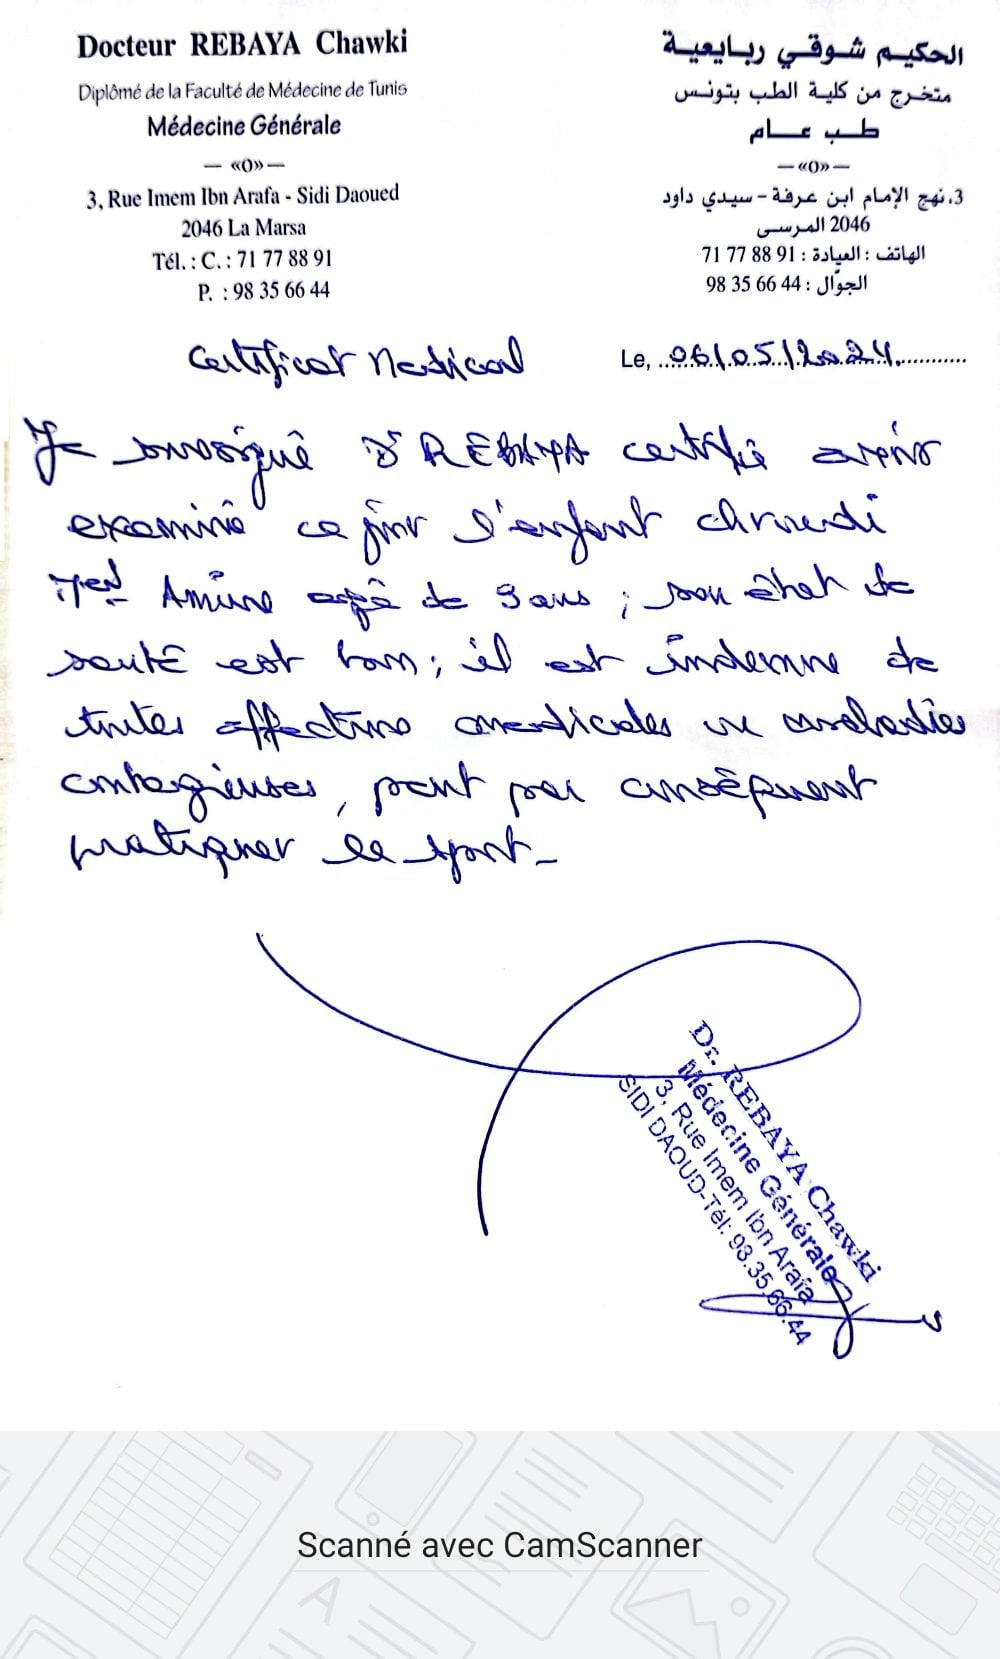 Docteur REBAYA Chawki
Diplômé de la Faculté de Médecine de Tunis
Médecine Générale
— «O» —
3, Rue Imem Ibn Arafa - Sidi Daoued
2046 La Marsa
Tél. : C. : 71 77 88 91
P. : 98 35 66 44
الحكيم شوقي ربايعية
متخرج من كلية الطب بتونس
طب عام
— «O» —
3، نهج الإمام ابن عرفة - سيدي داود
2046 المرسى
الهاتف : العيادة : 91 88 77 71
الجوّال : 44 66 35 98
Certificat Medical
Le, 06/05/2024
Je soussigné Dr REBAYA certifie avoir
examiné ce jour l'enfant chroudi
Med Amine agé de 9 ans ; son état de
santé est bon ; il est indemne de
toutes affections medicales ou maladies
contagieuses, peut par conséquent
pratiquer le sport -
Dr. REBAYA Chawki
Médecine Générale
3, Rue Imem Ibn Arafa
SIDI DAOUD-Tél: 98.35.66.44
Scanné avec CamScanner